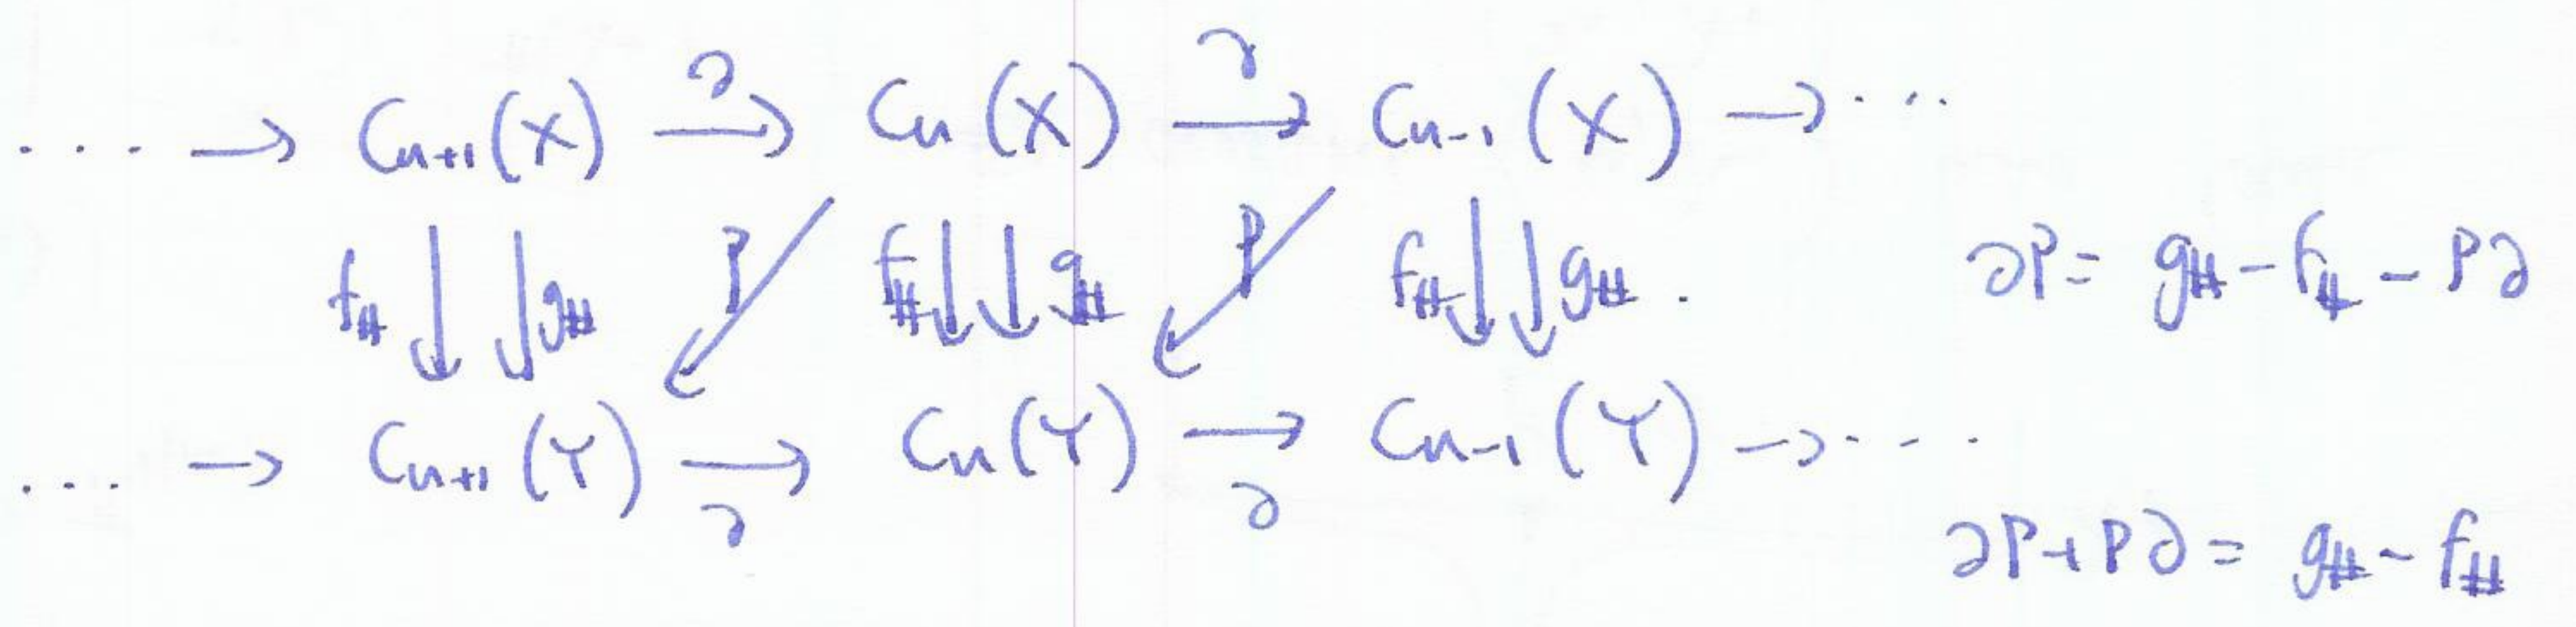 ... → Cn+1(X) →∂ Cn(X) →∂ Cn-1(X) → ...
f# ↓ ↓ g# P ↙ f# ↓ ↓ g# P ↙ f# ↓ ↓ g# . ∂P = g# - f# - P∂
... → Cn+1(Y) →∂ Cn(Y) →∂ Cn-1(Y) → ...
∂P + P∂ = g# - f#